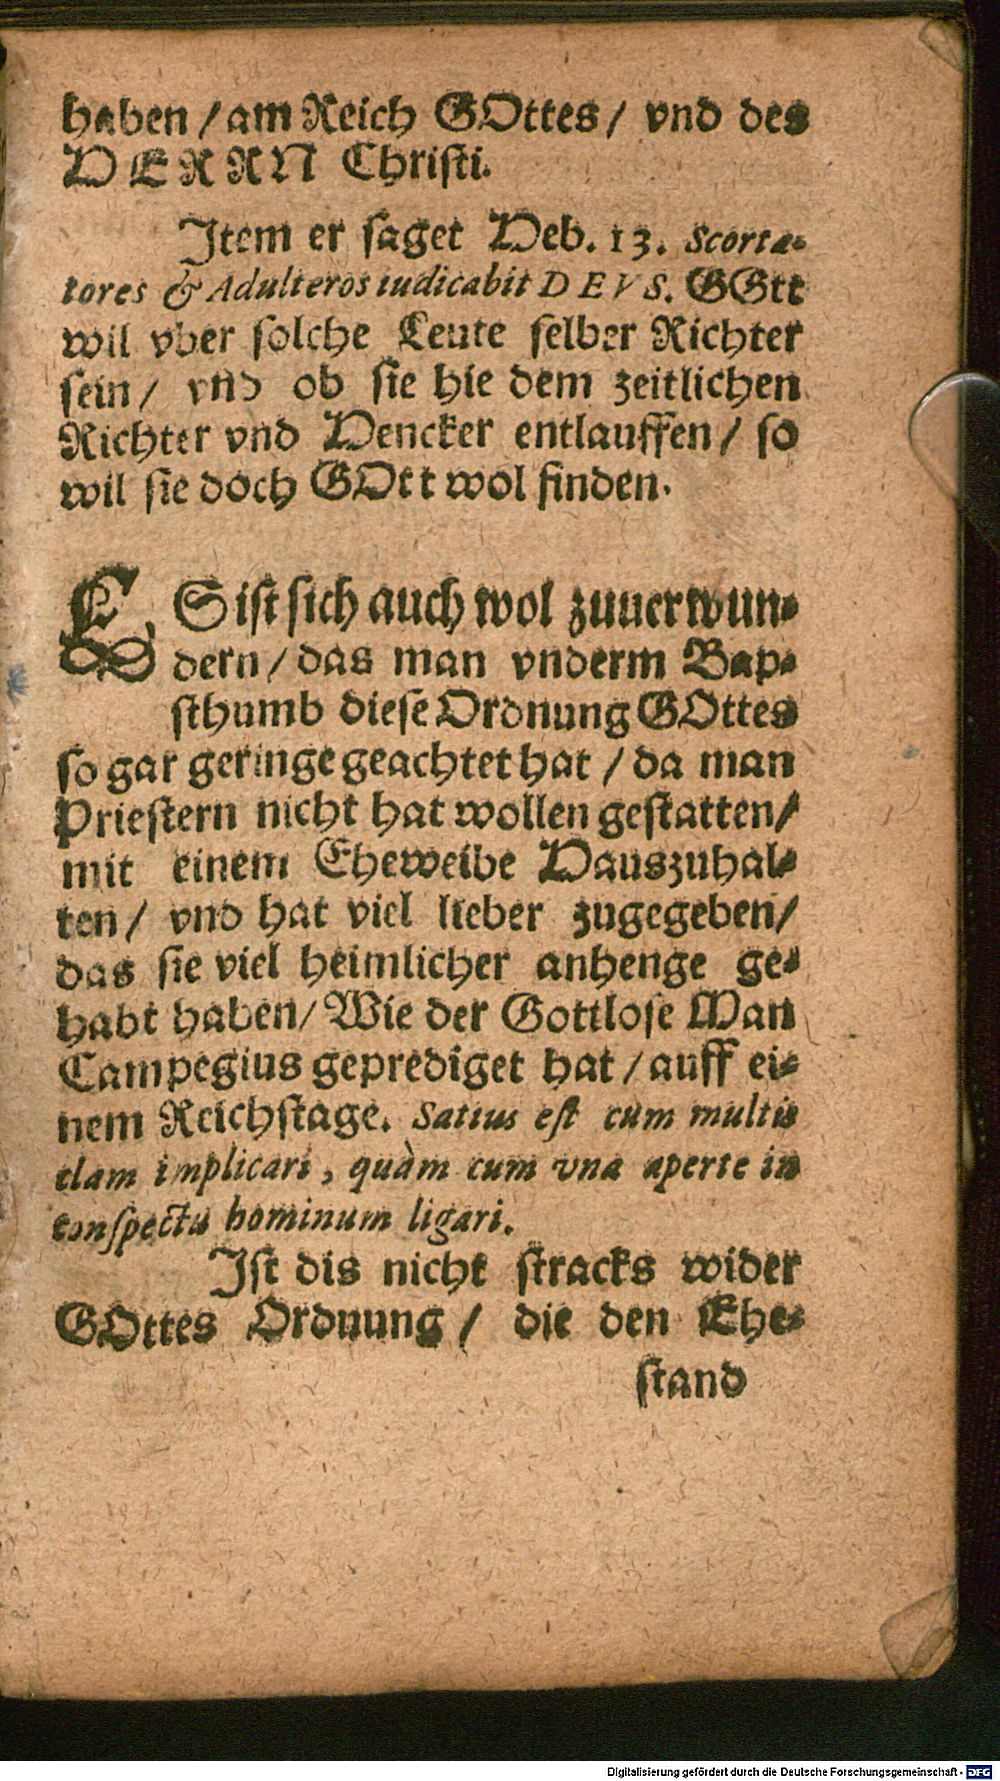 haben / am Reich GOttes / vnd des
HERRN Christi.
Jtem er saget Heb. 13. Scorta-
tores & Adulteros iudicabit DEVS. GOtt
wil vber solche Leute selber Richter
sein / vnd ob sie hie dem zeitlichen
Richter vnd Hencker entlauffen / so
wil sie doch GOtt wol finden.
ES ist sich auch wol zuuerwun-
dern / das man vnderm Bap-
sthumb diese Ordnung GOttes
so gar geringe geachtet hat / da man
Priestern nicht hat wollen gestatten /
mit einem Eheweibe Hauszuhal-
ten / vnd hat viel lieber zugegeben /
das sie viel heimlicher anhenge ge-
habt haben / Wie der Gottlose Man
Campegius geprediget hat / auff ei-
nem Reichstage. Satius est cum multis
clam implicari, quàm cum vna aperte in
conspectu hominum ligari.
Jst dis nicht stracks wider
GOttes Ordnung / die den Ehe-
stand
Digitalisierung gefördert durch die Deutsche Forschungsgemeinschaft - DFG